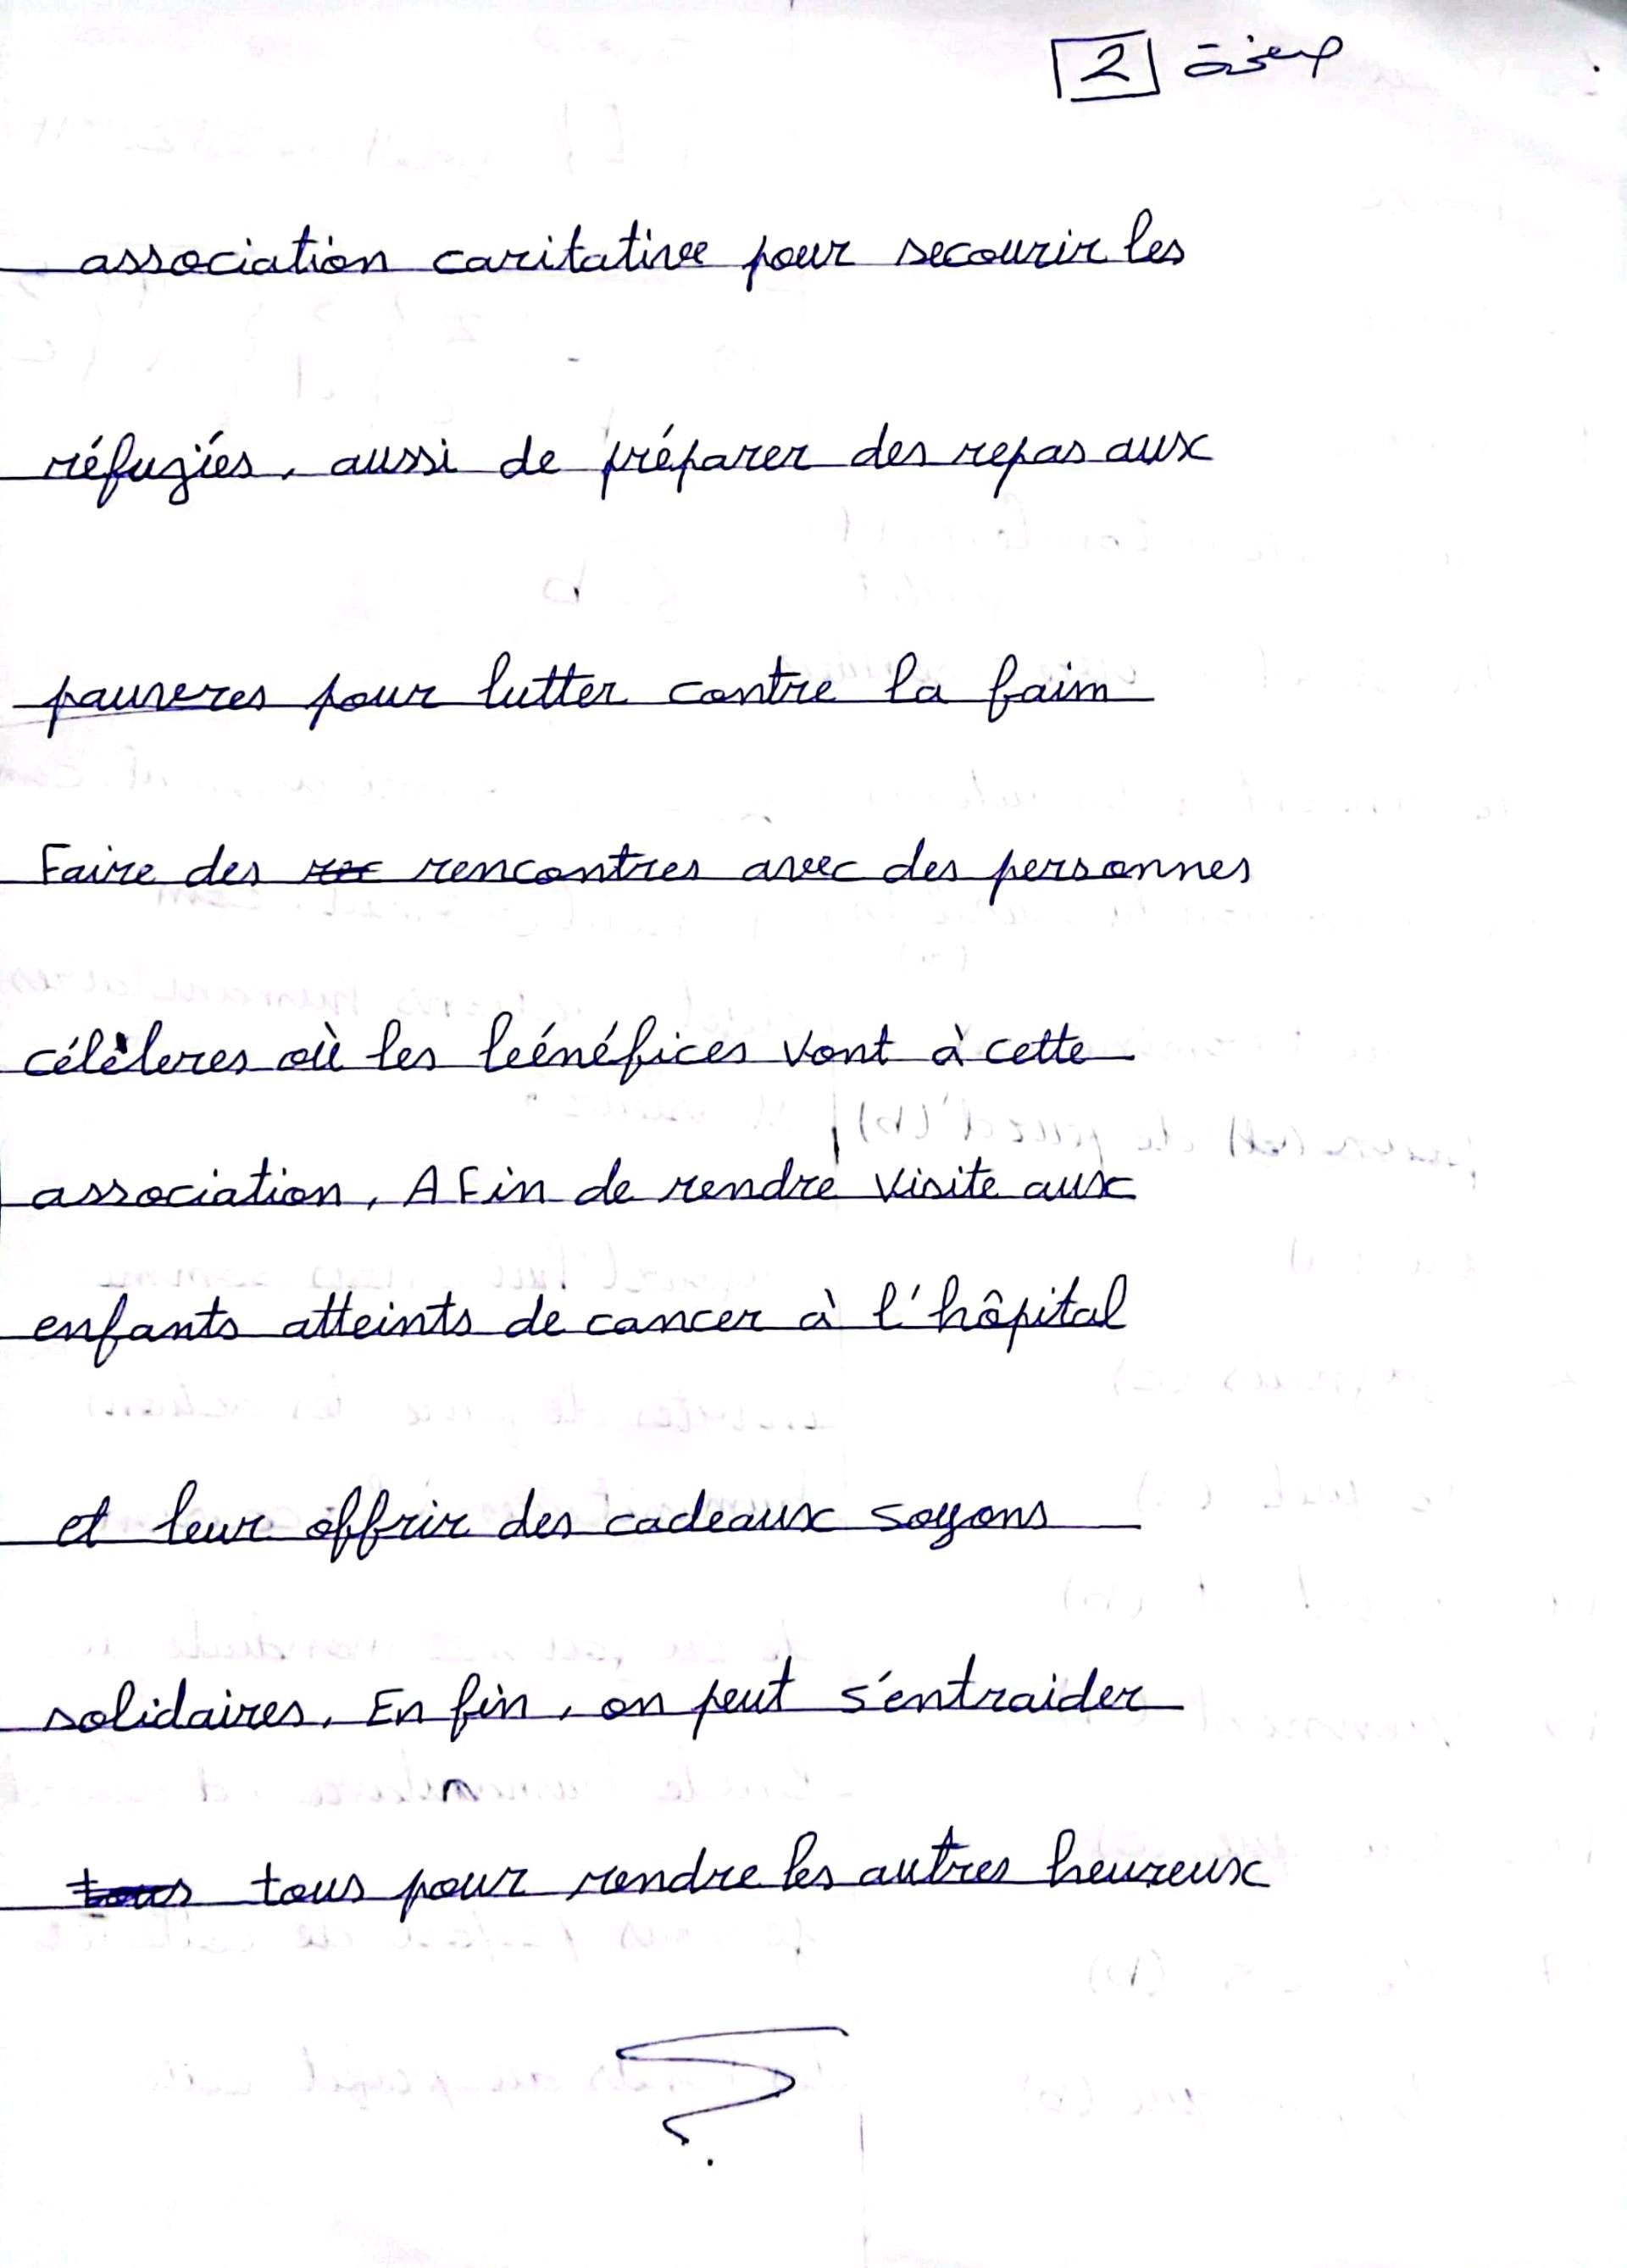 صفحة 2
association caritative pour secourir les
réfugiés, aussi de préparer des repas aux
pauvres pour lutter contre la faim
Faire des rencontres avec des personnes
célèbres où les bénéfices vont à cette
association, A Fin de rendre visite aux
enfants atteints de cancer à l'hôpital
et leur offrir des cadeaux soyons
solidaires, En fin, on peut s'entraider
tous tous pour rendre les autres heureux